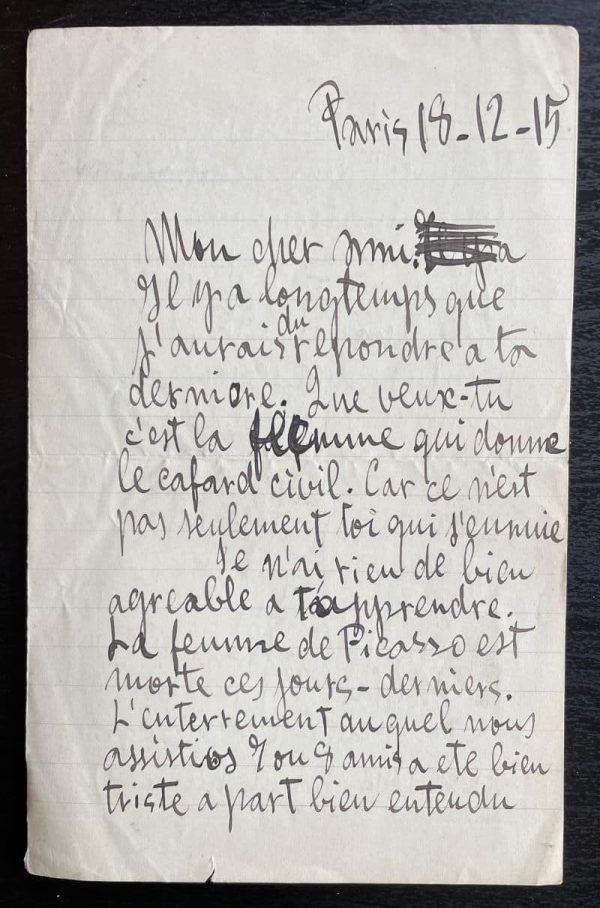 Paris 18-12-15
Mon cher ami.
Il y a longtemps que
du
j'aurais repondre a ta
derniere. Que veux-tu
c'est la flemme qui donne
le cafard civil. Car ce n'est
pas seulement toi qui s'ennuie
Je n'ai rien de bien
agreable a t'apprendre.
La femme de Picasso est
morte ces jours-derniers.
L'enterrement auquel nous
assistios 7 ou 8 amis a ete bien
triste a part bien entendu